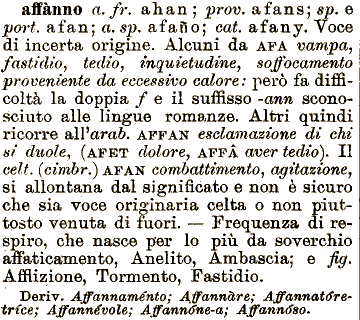 affànno a. fr. ahan; prov. afans; sp. e
port. afan; a. sp. afaño; cat. afany. Voce
di incerta origine. Alcuni da AFA vampa,
fastidio, tedio, inquietudine, soffocamento
proveniente da eccessivo calore: però fa diffi-
coltà la doppia f e il suffisso -ann scono-
sciuto alle lingue romanze. Altri quindi
ricorre all'arab. AFFAN esclamazione di chi
si duole, (AFET dolore, AFFÂ aver tedio). Il
celt. (cimbr.) AFAN combattimento, agitazione,
si allontana dal significato e non è sicuro
che sia voce originaria celta o non piut-
tosto venuta di fuori. — Frequenza di re-
spiro, che nasce per lo più da soverchio
affaticamento, Anelito, Ambascia; e fig.
Afflizione, Tormento, Fastidio.
Deriv. Affannaménto; Affannàre; Affannatóre-
tríce; Affannévole; Affannóne-a; Affannóso.